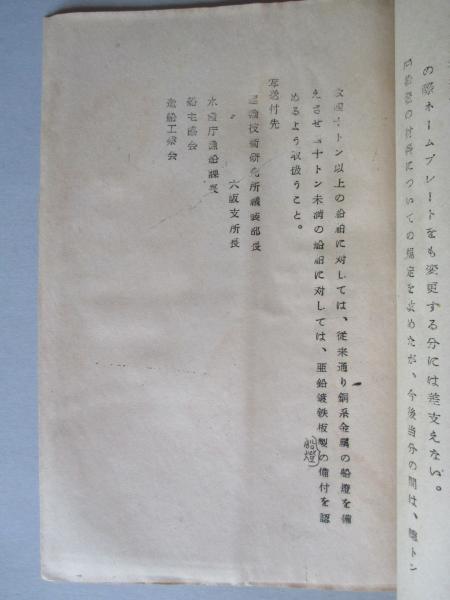 の際ネームプレートをも変更する分には差支えない。
の材料についての規定を改めたが、今後当分の間は、總トン
十トン以上の船舶に対しては、従来通り銅系金属の船燈を備
えさせ 十トン未満の船舶に対しては、亜鉛鍍鉄板製の備付を認
船燈
めるよう取扱うこと。
写送付先
運輸技術研究所艤装部長
大阪支所長
水産庁漁船課長
協会
造船工業会